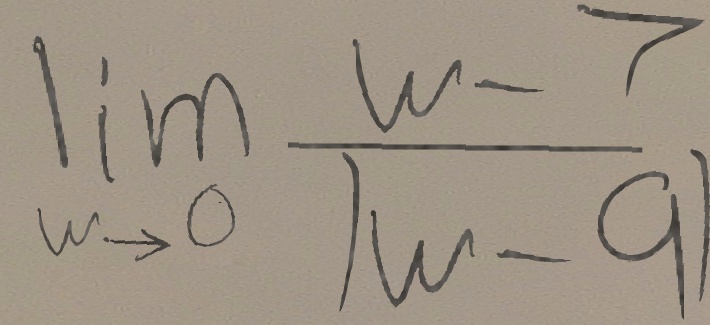 \lim_{w \to 0} \frac{w - 7}{|w - 9|}